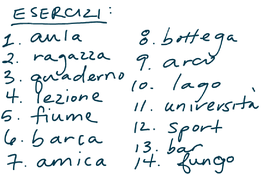 ESERCIZI:
1. aula
2. ragazza
3. quaderno
4. lezione
5. fiume
6. barca
7. amica
8. bottega
9. arco
10. lago
11. università
12. sport
13. bar
14. fungo